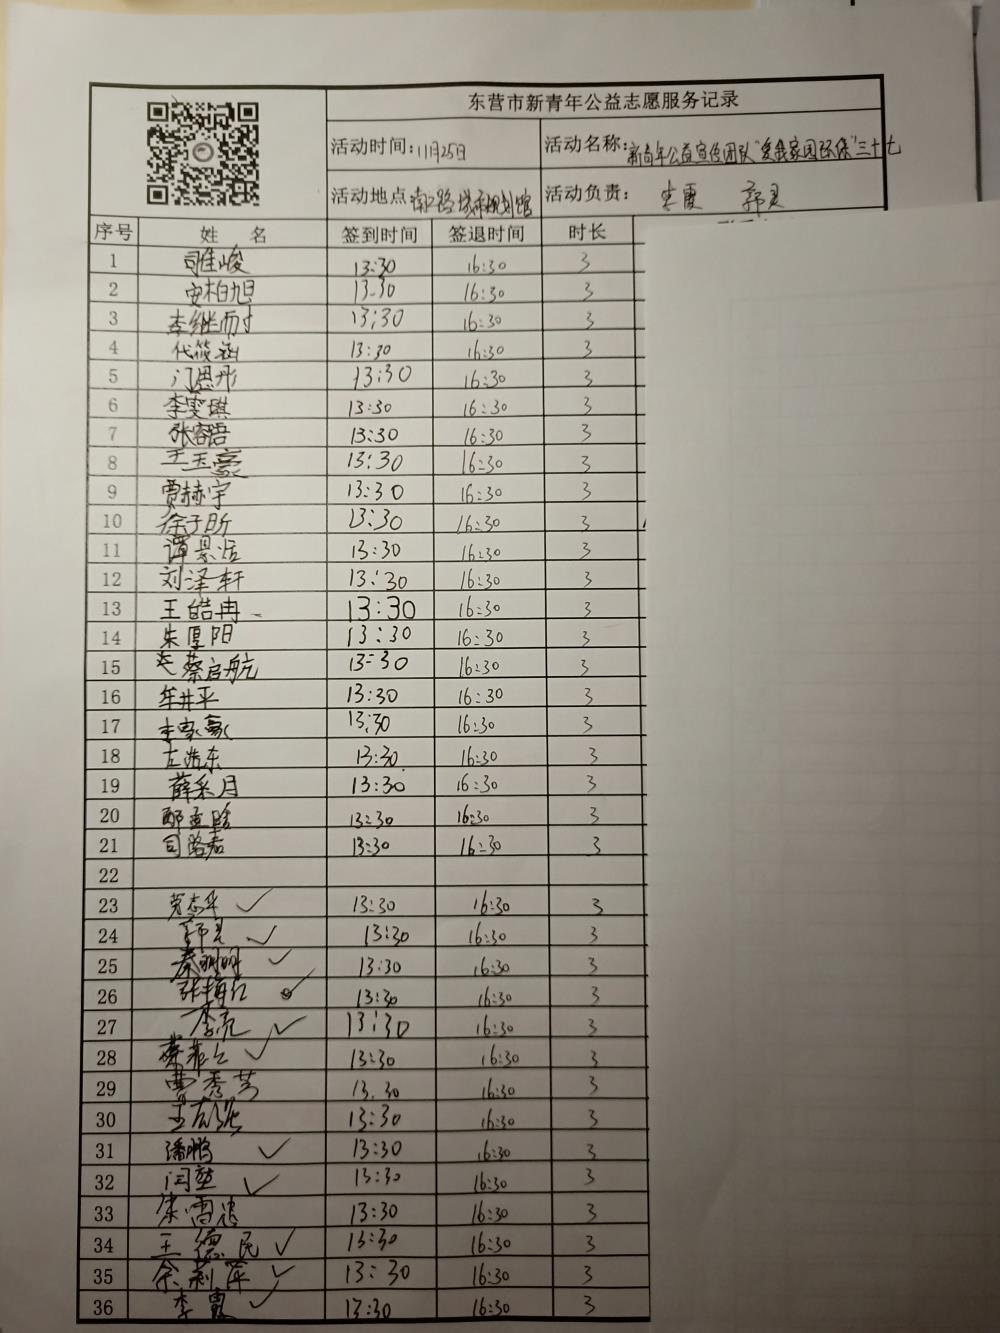 东营市新青年公益志愿服务记录
活动时间: 11月25日 活动名称: 新青年公益宣传团队"爱我家园环保"三十七
活动地点 南二路城市规划馆 活动负责: 李霞 郭灵
序号 姓 名 签到时间 签退时间 时长
1 司隹峻 13:30 16:30 3
2 安柏旭 13:30 16:30 3
3 李继而 13:30 16:30 3
4 代筱涵 13:30 16:30 3
5 门思彤 13:30 16:30 3
6 李雯琪 13:30 16:30 3
7 张容语 13:30 16:30 3
8 王玉豪 13:30 16:30 3
9 贾赫宇 13:30 16:30 3
10 徐于昕 13:30 16:30 3
11 谭景 13:30 16:30 3
12 刘泽轩 13:30 16:30 3
13 王皓冉 13:30 16:30 3
14 朱厚阳 13:30 16:30 3
15 蔡启航 13:30 16:30 3
16 牟井平 13:30 16:30 3
17 李家豪 13:30 16:30 3
18 左浩东 13:30 16:30 3
19 薛采月 13:30 16:30 3
20 13:30 16:30 3
21 司路 13:30 16:30 3
22
23 13:30 16:30 3
24 郭灵 13:30 16:30 3
25 秦明明 13:30 16:30 3
26 张梅红 13:30 16:30 3
27 李亮 13:30 16:30 3
28 13:30 16:30 3
29 曹秀芳 13:30 16:30 3
30 王 13:30 16:30 3
31 潘鹏 13:30 16:30 3
32 闫 13:30 16:30 3
33 雷 13:30 16:30 3
34 王德民 13:30 16:30 3
35 余莉萍 13:30 16:30 3
36 李霞 13:30 16:30 3